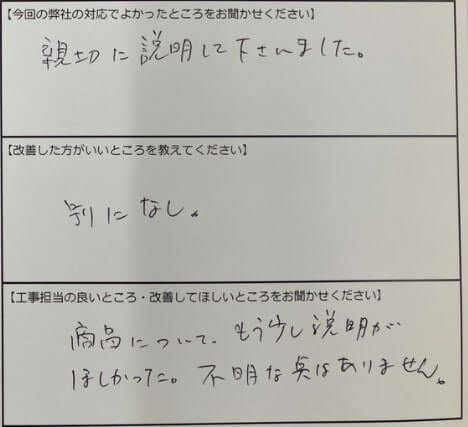 【今回の弊社の対応でよかったところをお聞かせください】
親切に説明して下さいました。
【改善した方がいいところを教えてください】
別になし。
【工事担当の良いところ・改善してほしいところをお聞かせください】
商品について、もう少し説明が
ほしかった。不明な点はありません。